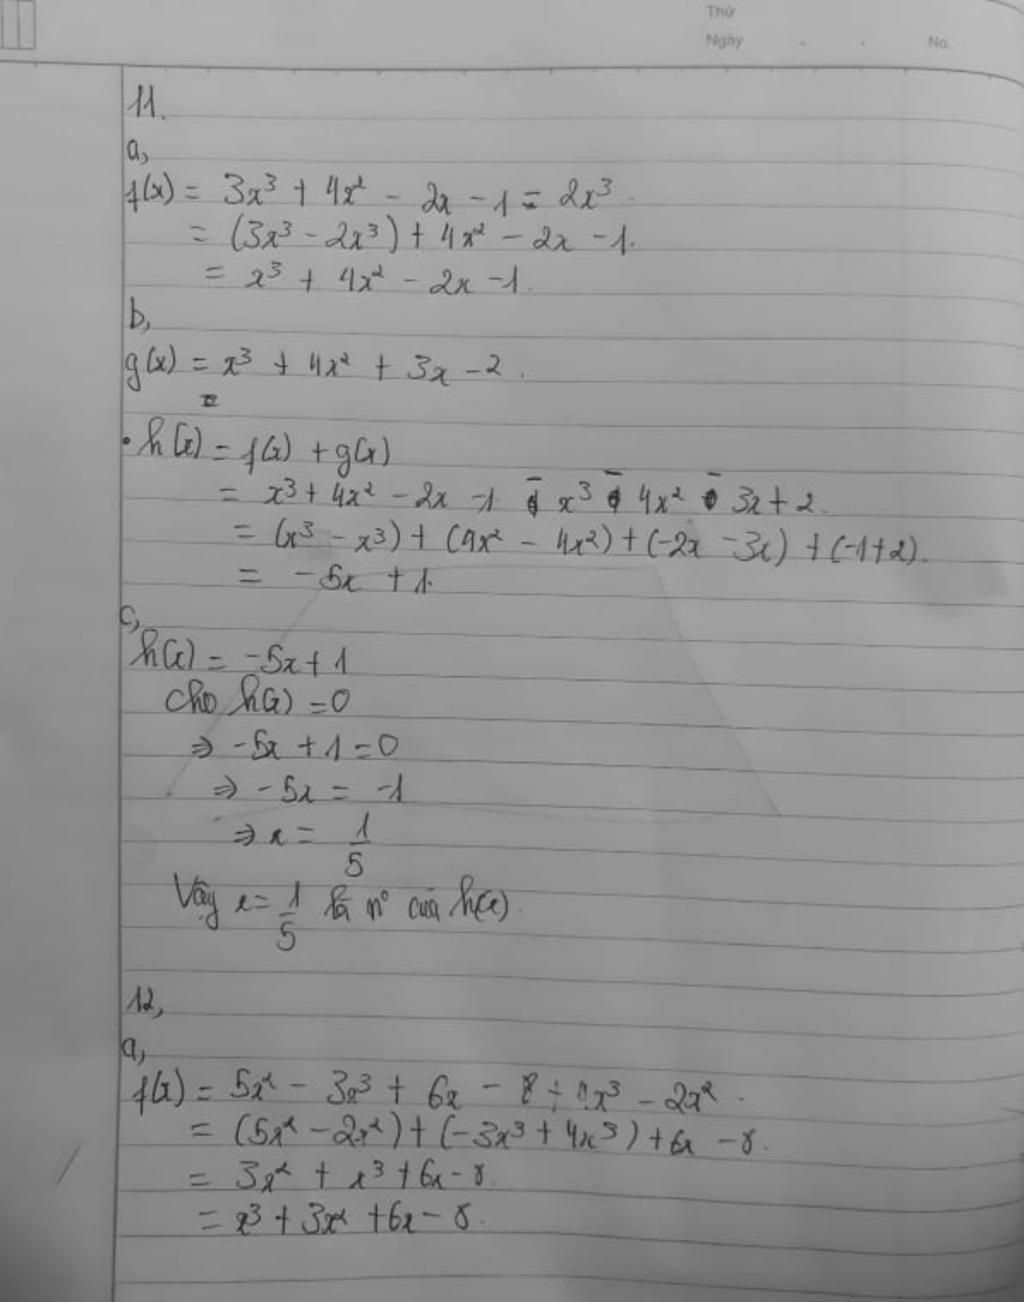 Thứ
Ngày . . No.
11.
a,
f(x) = 3x³ + 4x² - 2x - 1 - 2x³.
= (3x³ - 2x³) + 4x² - 2x - 1.
= x³ + 4x² - 2x - 1.
b,
g(x) = x³ + 4x² + 3x - 2.
=
• h(x) = f(x) + g(x)
= x³ + 4x² - 2x - 1 - x³ - 4x² - 3x + 2.
= (x³ - x³) + (4x² - 4x²) + (-2x - 3x) + (-1+2).
= -5x + 1.
c,
h(x) = -5x + 1
cho h(x) = 0
⇒ -5x + 1 = 0
⇒ -5x = -1
⇒ x = 1/5
Vậy x = 1/5 là n° của h(x).
12,
a,
f(x) = 5x² - 3x³ + 6x - 8 + 4x³ - 2x².
= (5x² - 2x²) + (-3x³ + 4x³) + 6x - 8.
= 3x² + x³ + 6x - 8.
= x³ + 3x² + 6x - 8.